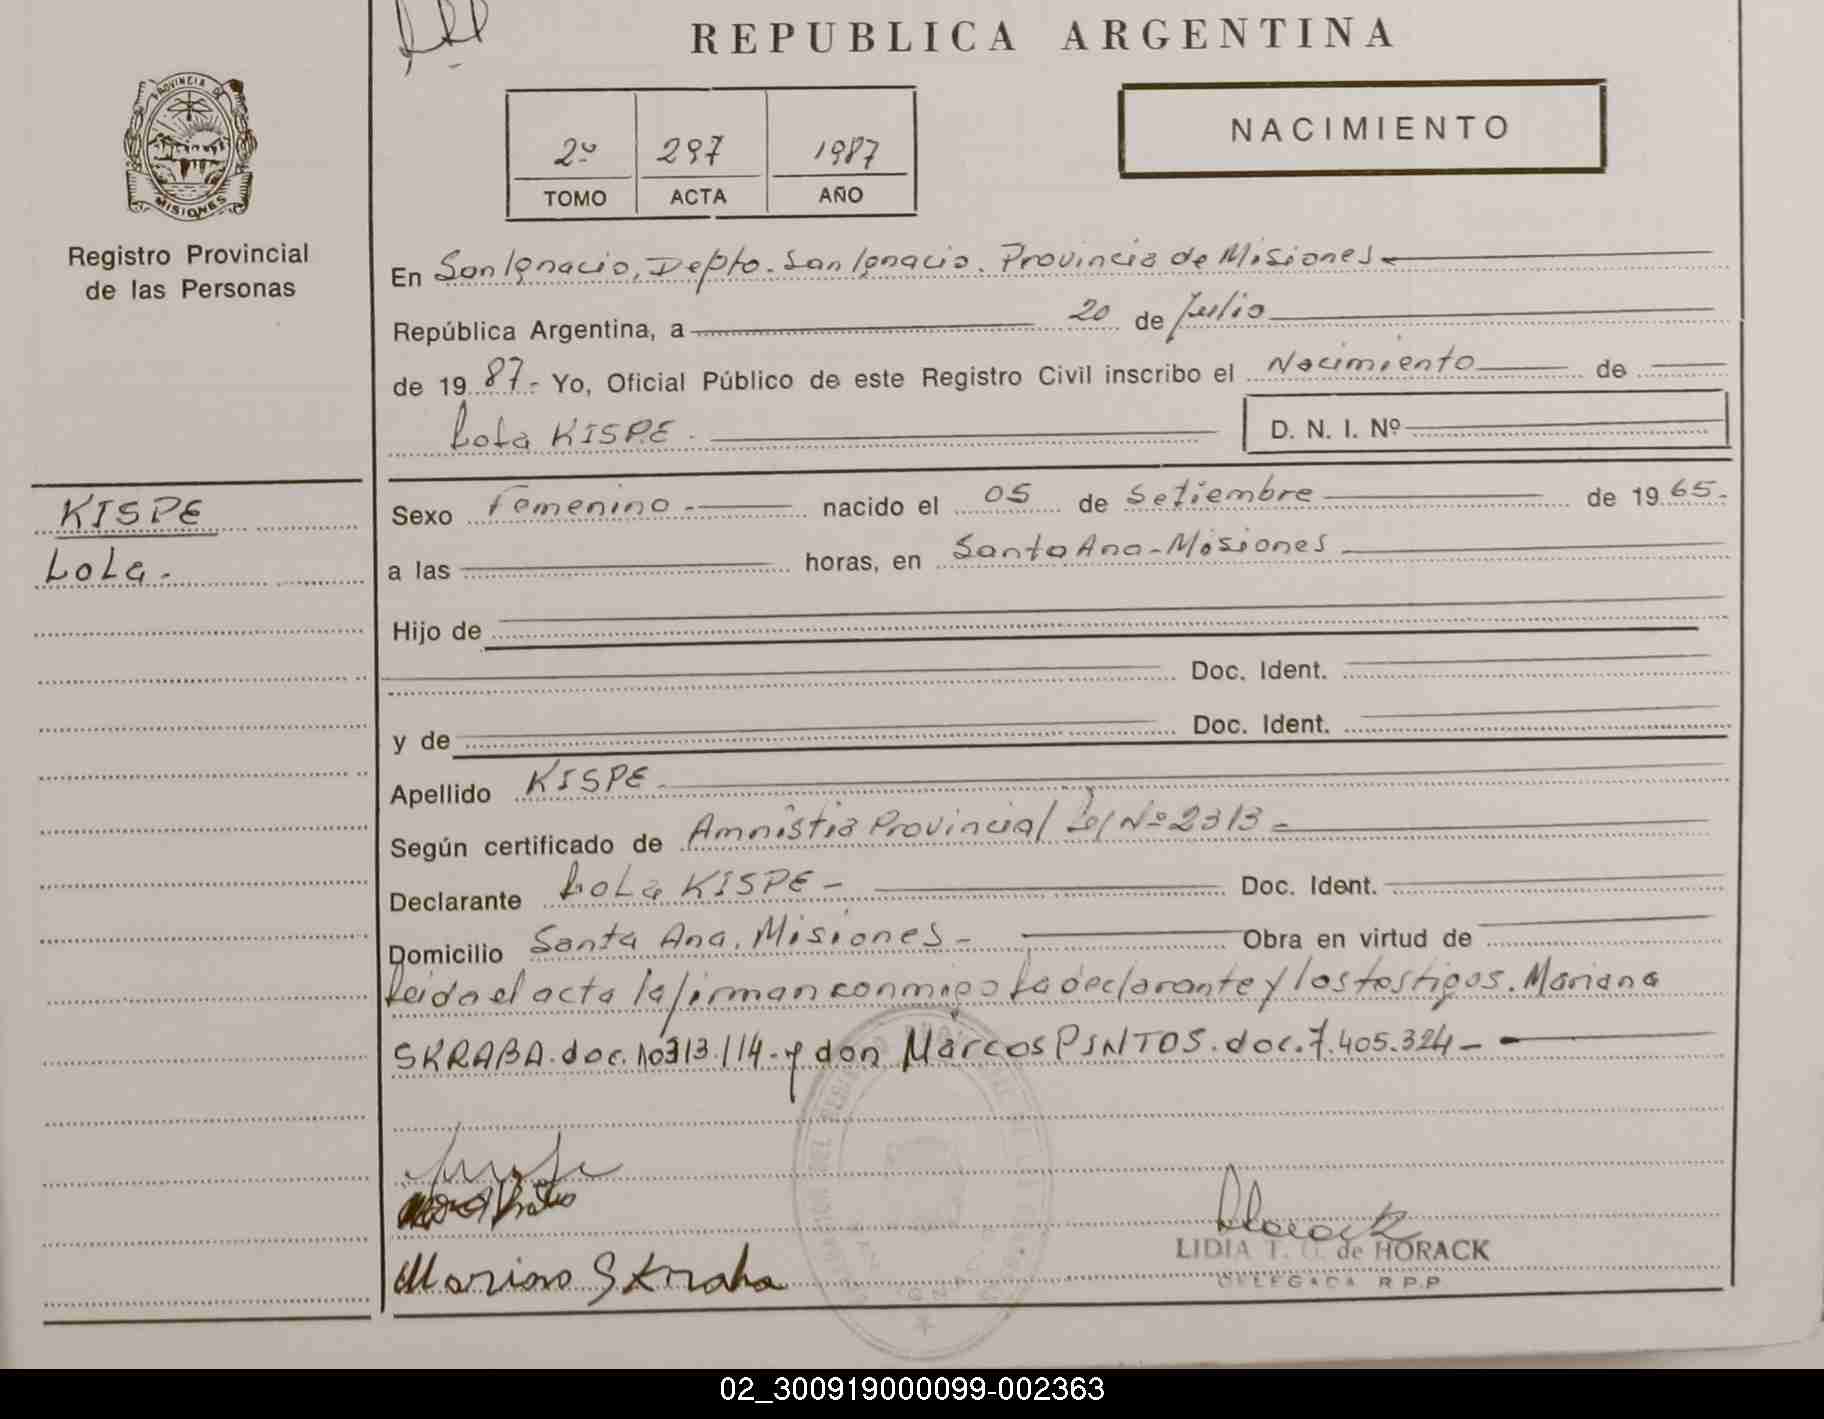 REPUBLICA ARGENTINA
PROVINCIA DE
MISIONES
Registro Provincial
de las Personas
2º 297 1987
TOMO ACTA AÑO
NACIMIENTO
En San Ignacio, Depto. San Ignacio. Provincia de Misiones
República Argentina, a 20 de Julio
de 19 87.- Yo, Oficial Público de este Registro Civil inscribo el Nacimiento de
Lola KISPE. D. N. I. Nº
KISPE
Lola.-
Sexo Femenino.- nacido el 05 de Setiembre de 19 65.-
a las horas, en Santa Ana-Misiones
Hijo de
Doc. Ident.
y de Doc. Ident.
Apellido KISPE.
Según certificado de Amnistia Provincial Ley Nº 2313-
Declarante Lola KISPE- Doc. Ident.
Domicilio Santa Ana. Misiones- Obra en virtud de
Leida el acta la firman conmigo la declarante y los testigos. Mariana
SKRABA. doc. 10313.114- y don Marcos PINTOS. doc. 7.405.324-
Mariana Skraba
LIDIA T. G. de HORACK
DELEGADA R.P.P
02_300919000099-002363